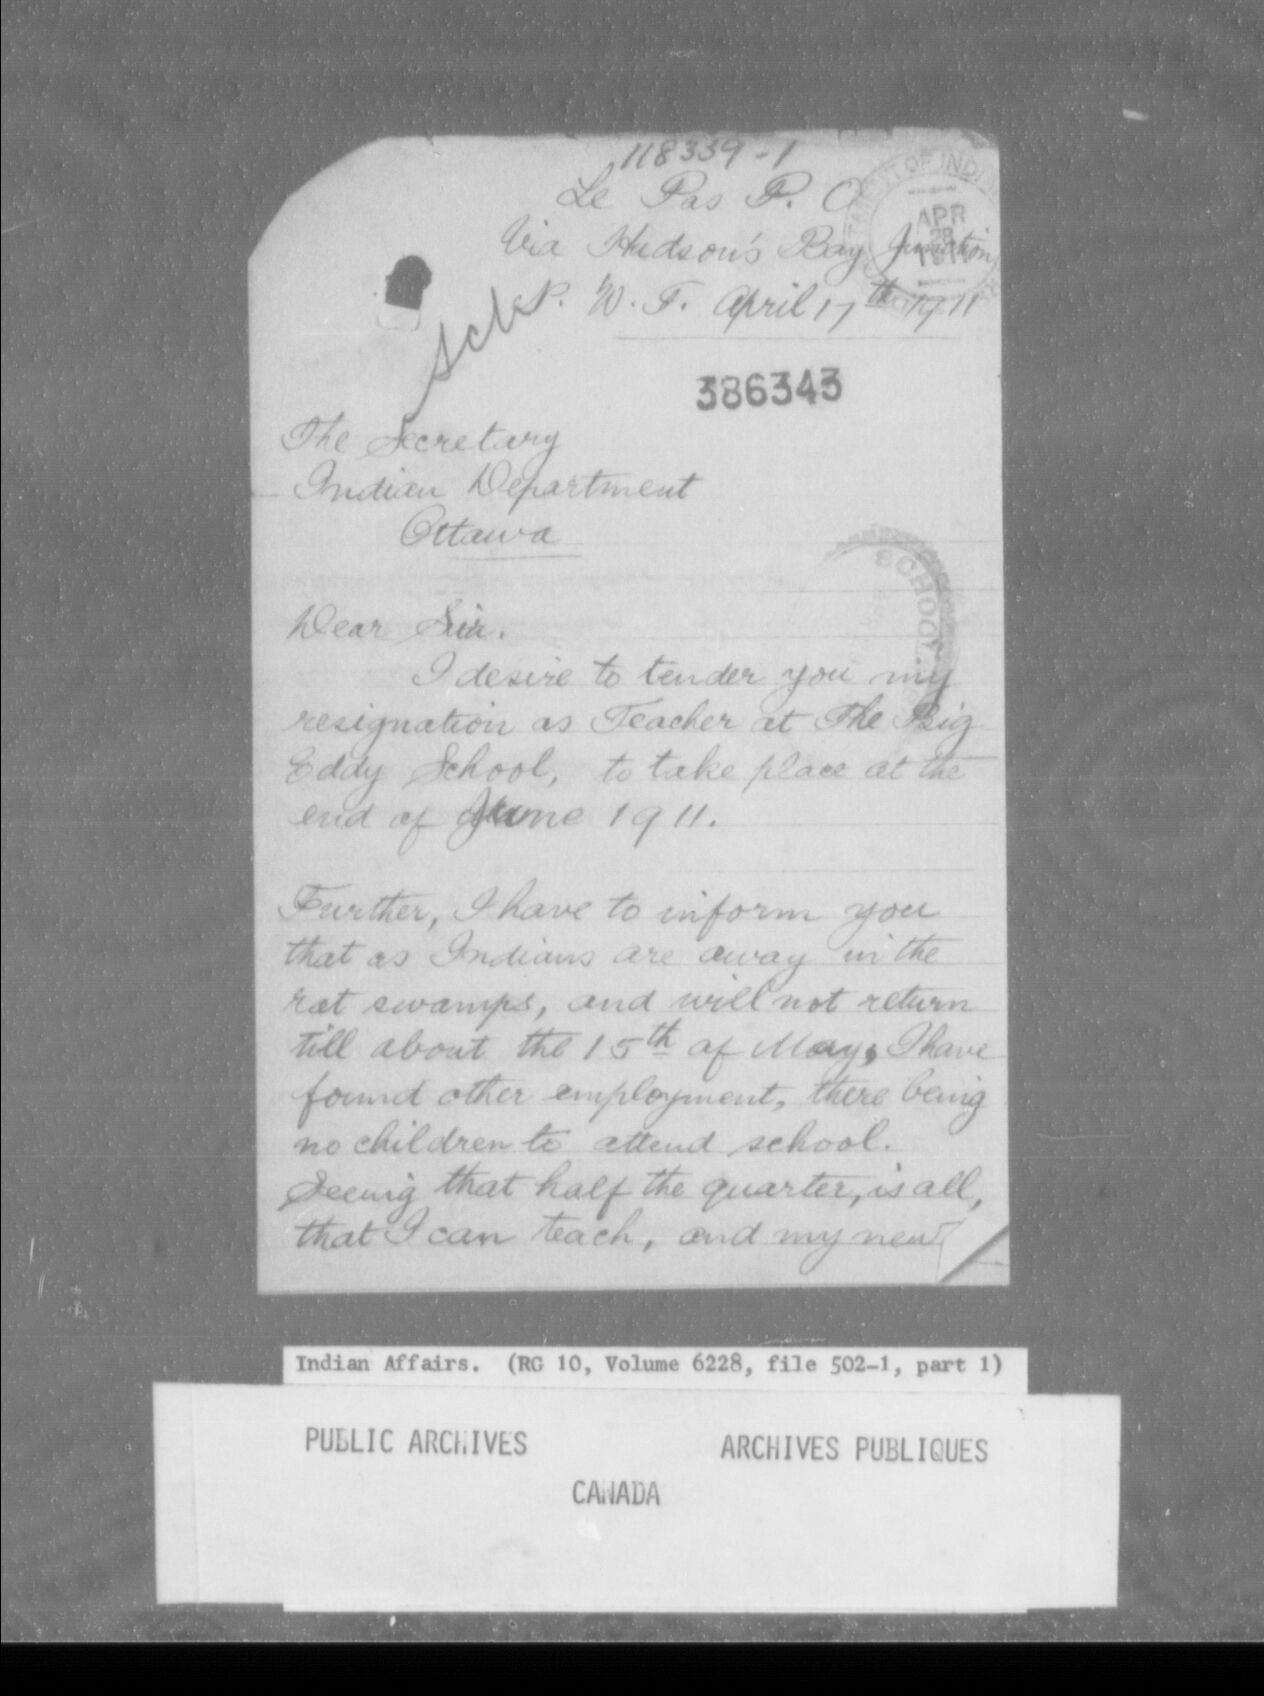 118339-1
Le Pas P. O
Via Hudson's Bay Junction
N. W. T. April 17th 1911
DEPARTMENT OF INDI
APR
28
1911
Sch
386343
The Secretary
Indian Department
Ottawa
SCHOOL
Dear Sir.
I desire to tender you my
resignation as Teacher at The Big
Eddy School, to take place at the
end of June 1911.
Further, I have to inform you
that as Indians are away in the
rat swamps, and will not return
till about the 15th of May, I have
found other employment, there being
no children to attend school.
Seeing that half the quarter, is all,
that I can teach, and my new
Indian Affairs. (RG 10, Volume 6228, file 502-1, part 1)
PUBLIC ARCHIVES ARCHIVES PUBLIQUES
CANADA